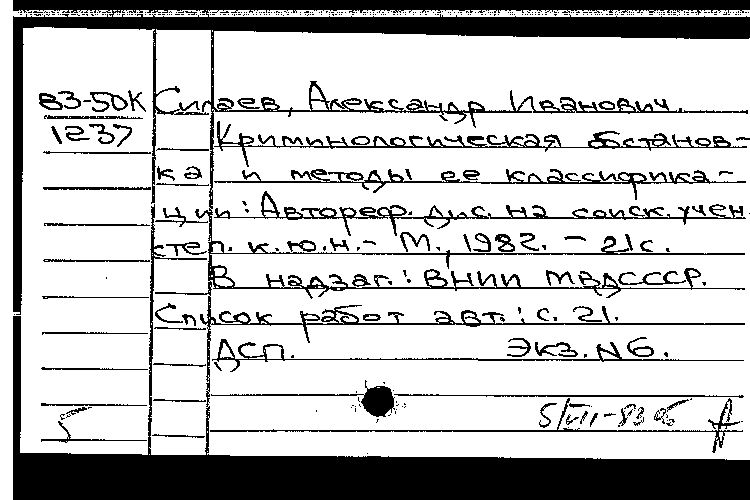 83-50К Силаев, Александр Иванович.
1237 Криминологическая обстанов-
ка и методы ее классифика-
ции: Автореф. дис. на соиск. учен.
степ. к.ю.н. - М., 1982. - 21с.
В надзаг.: ВНИИ МВДСССР.
Список работ авт.: с. 21.
ДСП. Экз. N6.
5/VII-83
5